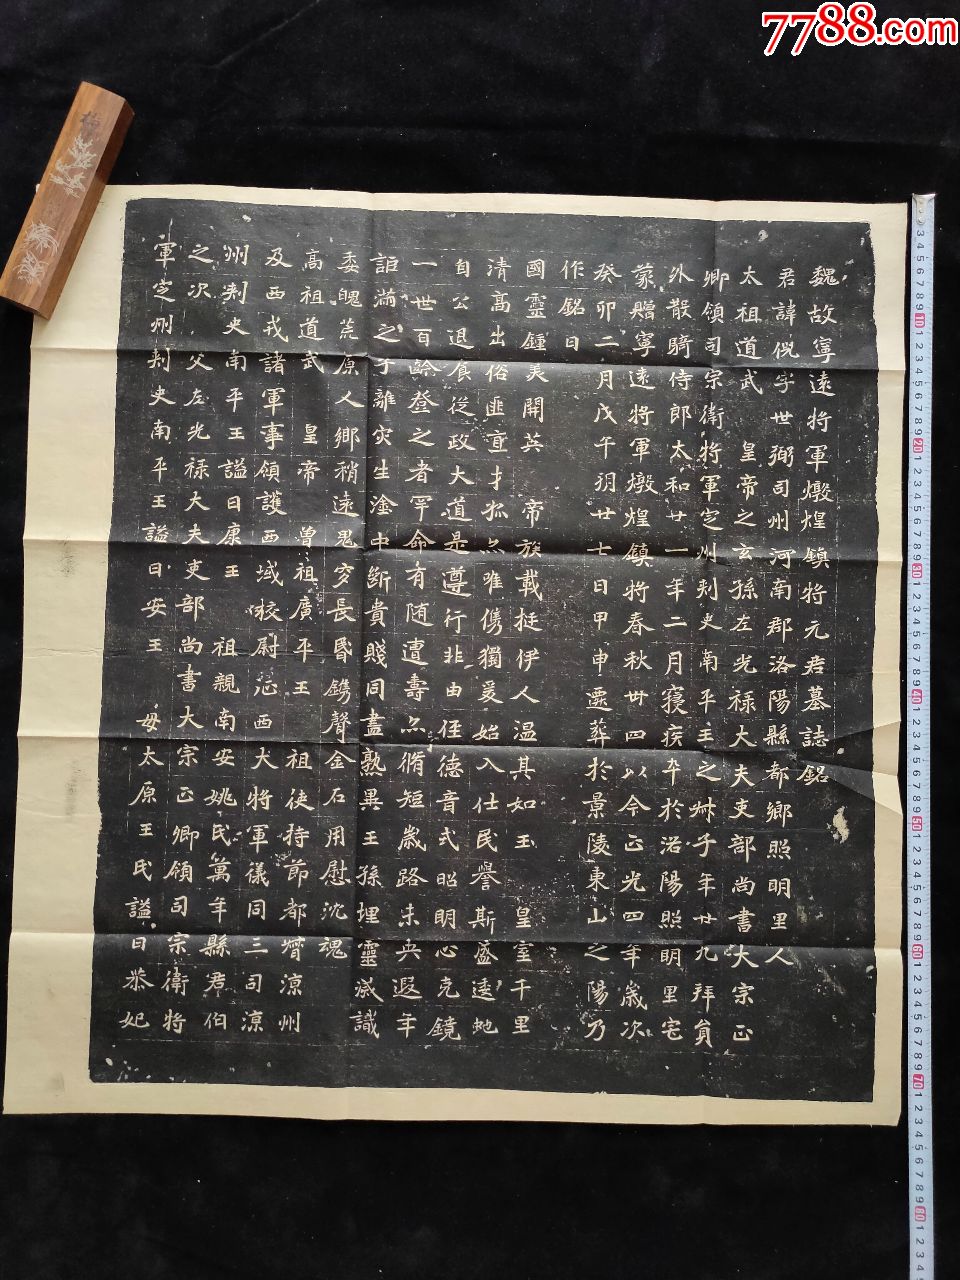 7788.com
魏故寧遠將軍燉煌鎮將元君墓誌銘
君諱倪字世弼司州河南郡洛陽縣都鄉照明里人
太祖道武 皇帝之玄孫左光禄大夫吏部尚書大宗正
卿領司宗衛將軍定州刺史南平王之叔子年廿九拜員
外散騎侍郎太和廿一年二月寢疾卒於洛陽照明里宅
蒙贈寧遠將軍燉煌鎮將春秋卅四以今正光四年歲次
癸卯二月戊午朔廿七日甲申遷葬於景陵東山之陽乃
作銘曰
國靈鍾美開英 帝族載挺伊人温其如玉 皇室千里
清高出俗匪亶才孤亦唯儁獨爰始入仕民譽斯盛逶虵
自公退食從政大道是遵行非由侹德音式昭明心克鏡
一世百齡登之者罕命有随遭壽亦脩短嵗路未央遐年
詎滿之子離灾生淦中斷貴賤同盡熟異王孫埋靈滅識
委魄荒原人鄉稍遠鬼穸長昏鐫聲金石用慰沈魂
高祖道武 皇帝 曾祖廣平王 祖使持節都督凉州
及西戎諸軍事領護西域校尉 西大將軍儀同三司凉
州刺史南平王謚曰康王 祖親南安姚氏萬年縣君伯
之次 父左光禄大夫吏部尚書大宗正卿領司宗衛將
軍定州刺史南平王謚曰安王 母太原王氏謚曰恭妃